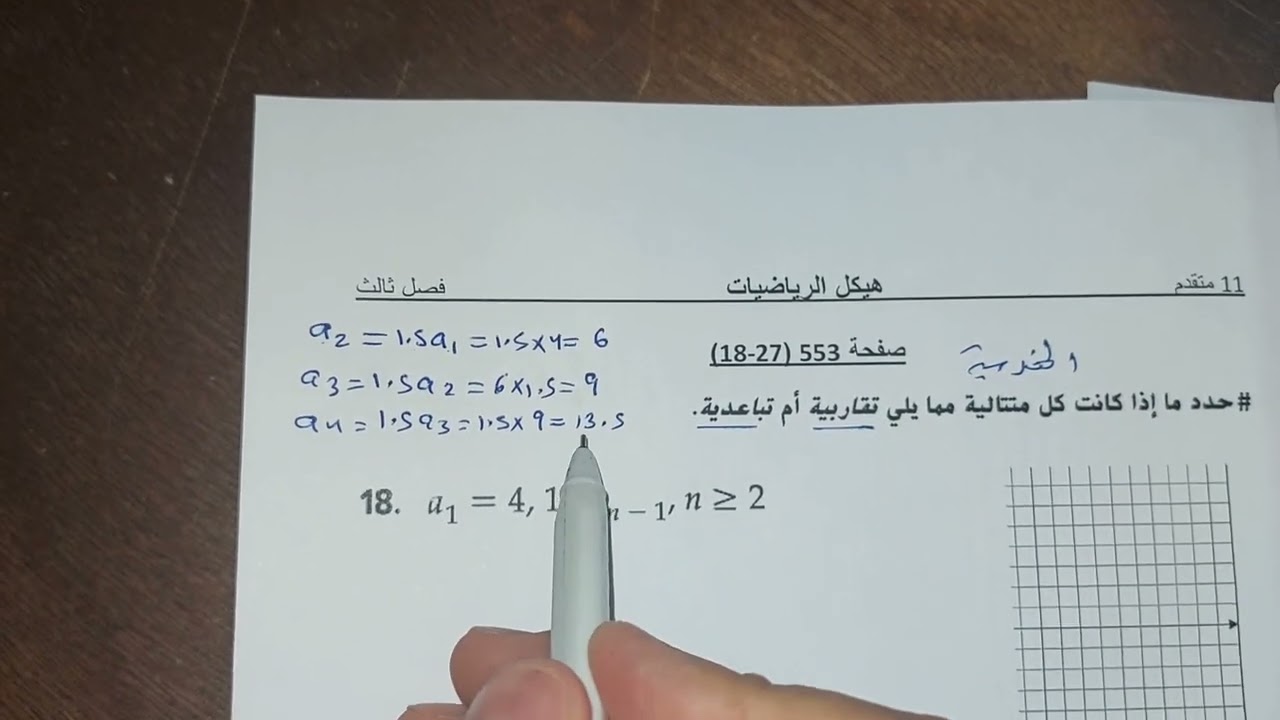 11 متقدم هيكل الرياضيات فصل ثالث
a2 = 1.5a1 = 1.5x4= 6
a3 = 1.5a2 = 6x1.5 = 9
a4 = 1.5a3 = 1.5x9 = 13.5
صفحة 553 (18-27)
# حدد ما إذا كانت كل متتالية مما يلي تقاربية أم تباعدية.
18. a₁ = 4, 1 n − 1, n ≥ 2